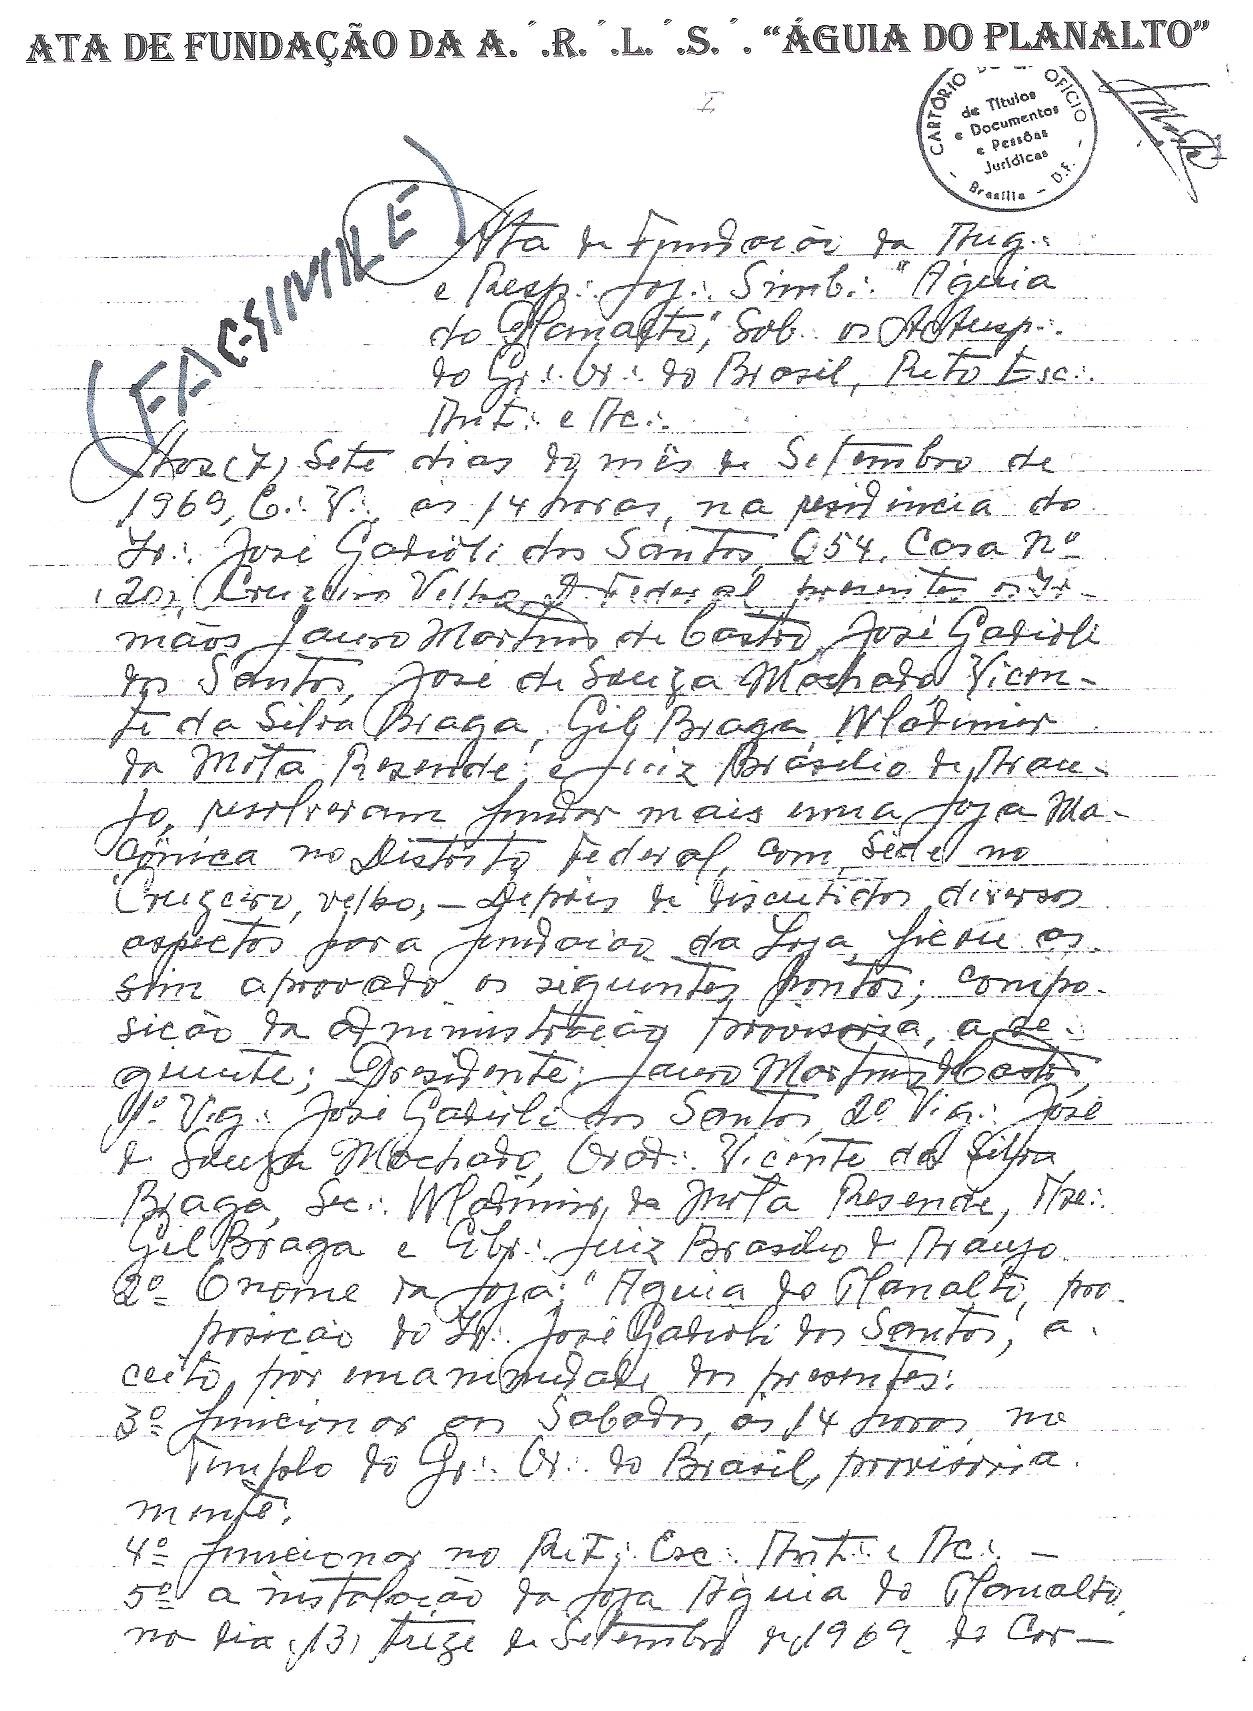 ATA DE FUNDAÇÃO DA A.´.R.´.L.´.S.´. “ÁGUIA DO PLANALTO”
I
CARTÓRIO DO OFÍCIO
de Títulos
e Documentos
e Pessôas
Jurídicas
- Brasília - D.F. -
(FAC-SIMILE)
Ata de Fundação da Aug.:
e Resp.: Loj.: Simb.: "Águia
do Planalto", Sob. os Auusp.:
do Gr.: Or.: do Brasil, Rito Esc.:
Ant.: e Ac.:
Aos (7) Sete dias do mês de Setembro de
1969, E.: V.:, às 14 horas, na residência do
Ir.: José Gadioli dos Santos, Q 54, Casa nº
20, Cruzeiro Velho, D. Federal, presentes os Ir-
mãos Lauro Martins de Castro, José Gadioli
dos Santos, José de Souza Machado, Vicen-
te da Silva Braga, Gil Braga, Wladimir
da Mota Rezende, e Luiz Brasilio de Arau-
jo, resolveram fundar mais uma Loja Ma-
çônica no Distrito Federal, com Sede no
Cruzeiro, velho, - Depois de discutidos diversos
aspectos para fundação da Loja, ficou as-
sim aprovado os seguintes pontos; compo-
sição da administração provisoria, a se-
guinte; Presidente; Lauro Martins de Castro,
1º Vig.: José Gadioli dos Santos, 2º Vig.: José
de Souza Machado, Orad.: Vicente da Silva
Braga, Sec.: Wladimir da Mota Resende, Tes.:
Gil Braga e Cibr.: Luiz Brasilio de Araujo
2º- O nome da Loja; "Aguia do Planalto, pro-
posição do Ir.: José Gadioli dos Santos, a-
ceito por unanimidade dos presentes.
3º funcionar aos Sabados, às 14 horas, no
Templo do Gr.: Or.: do Brasil, provisoria-
mente.
4º- funcionar no Rit.: Esc.: Ant.: e Ac.: -
5º- a instalação da Loja Aguia do Planalto,
no dia (13) treze de Setembro de 1969 do Cor-